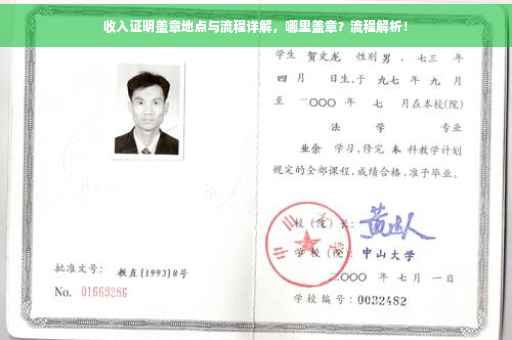 收入证明盖章地点与流程详解，哪里盖章？流程解析！
学生 贺文龙 性别 男 、七三 年
四 月 日生,于 九七 年 九 月
至 二〇〇〇 年 七 月在本校(院)
法 学 专业
业余 学习,修完 本 科教学计划
规定的全部课程,成绩合格,准予毕业。
校(院)长:
学 校(院): 中山大学
二〇〇〇 年 七 月 一 日
学校编号: 0032482
批准文号: 教直(1993)8号
No. 01669286